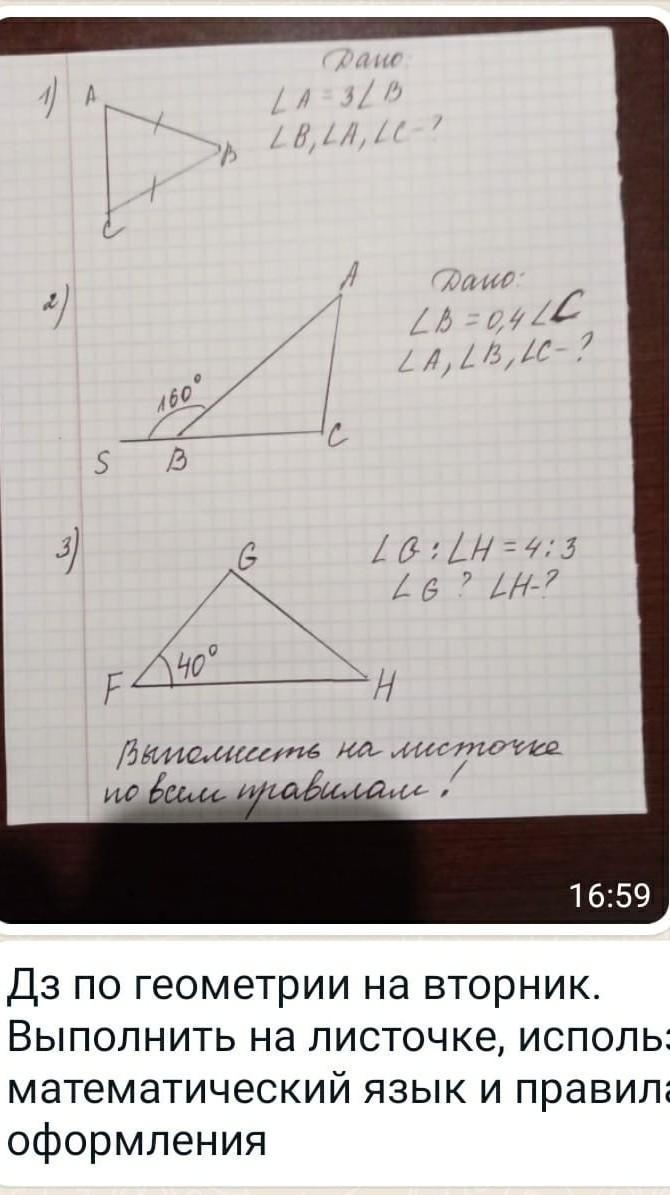 Дано:
1) A
∠A = 3∠B
B
∠B, ∠A, ∠C - ?
C
2)
A
Дано:
∠B = 0,4∠C
∠A, ∠B, ∠C - ?
160°
S B C
3)
G
∠G : ∠H = 4 : 3
∠G ? ∠H-?
40°
F H
Выполнить на листочке
по всем правилам!
16:59
Дз по геометрии на вторник.
Выполнить на листочке, исполь
математический язык и правил
оформления